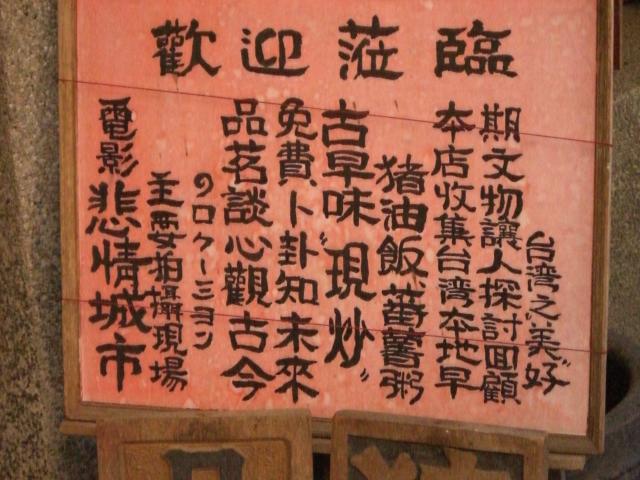 歡迎蒞臨
電影悲情城市
主要拍攝現場
のロケーミヨン
品茗談心觀古今
免費卜卦知未來
古早味"現炒"
猪油飯、蕃薯粥
本店收集台湾本地早
期文物讓人探討回顧
台湾之美好